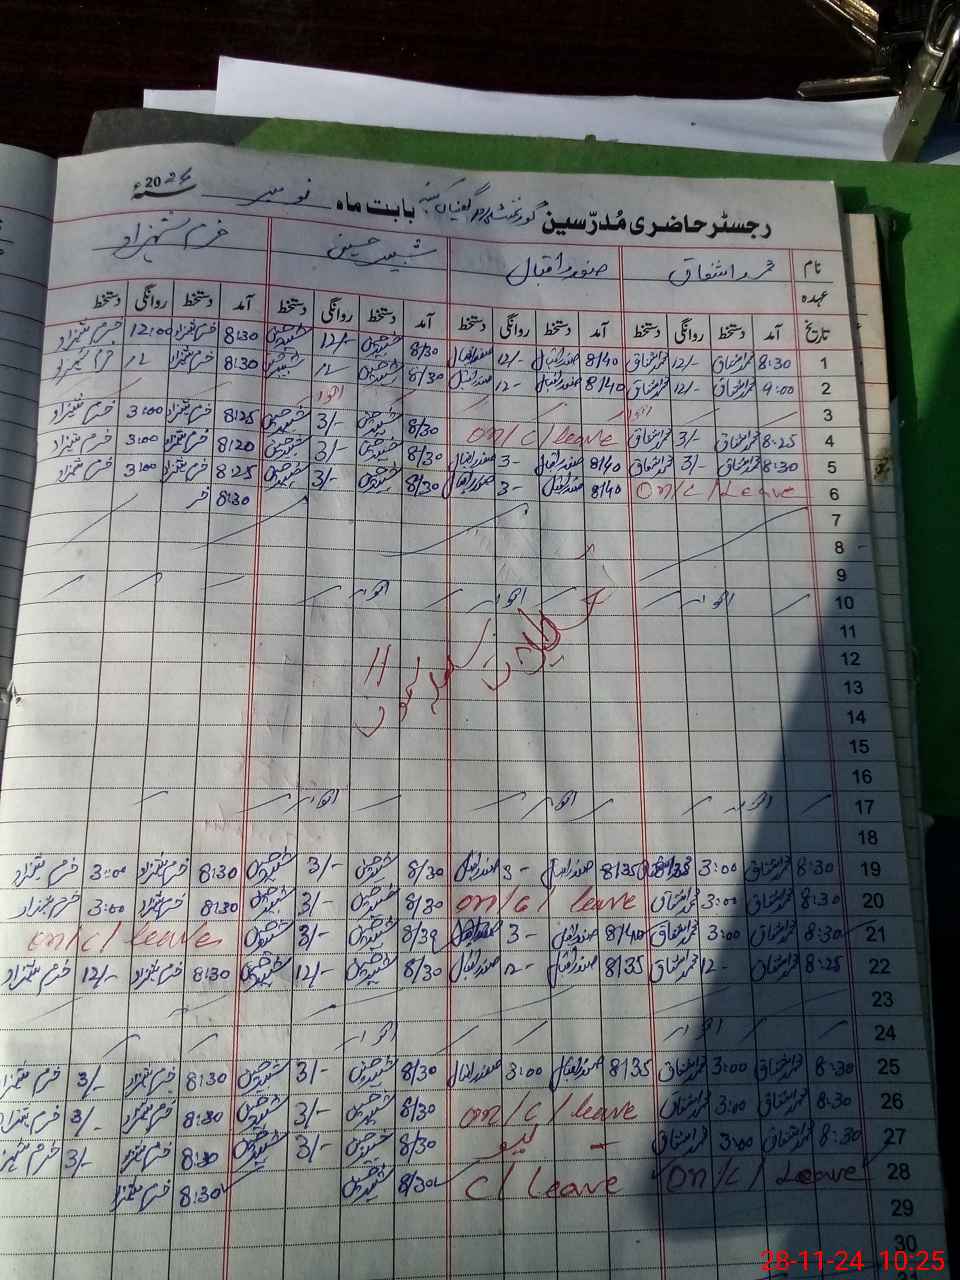 رجسٹر حاضری مُدرّسین گورنمنٹ بابت ماہ نومبر 2024ء
نام محمد اشفاق صفدر اقبال شبیر حسین خرم شہزاد
عہدہ
تاریخ آمد دستخط روانگی دستخط آمد دستخط روانگی دستخط آمد دستخط روانگی دستخط آمد دستخط روانگی دستخط
1 8:30 محمد اشفاق 12/- محمد اشفاق 8/40 صفدر اقبال 12/- صفدر اقبال 8/30 شبیر حسین 12/- شبیر حسین 8:30 خرم شہزاد 12:00 خرم شہزاد
2 9:00 محمد اشفاق 12/- محمد اشفاق 8/40 صفدر اقبال 12- صفدر اقبال 8/30 شبیر حسین 12 شبیر حسین 8:30 خرم شہزاد 12 خرم شہزاد
3 اتوار اتوار
4 8:25 محمد اشفاق 3/- محمد اشفاق on/c/leave 8/30 شبیر حسین 3/- شبیر حسین 8:25 خرم شہزاد 3:00 خرم شہزاد
5 8:30 محمد اشفاق 3/- محمد اشفاق 8/40 صفدر اقبال 3- صفدر اقبال 8/30 شبیر حسین 3/- شبیر حسین 8:20 خرم شہزاد 3:00 خرم شہزاد
6 on/c/Leave 8/40 صفدر اقبال 3- صفدر اقبال 8/30 شبیر حسین 3/- شبیر حسین 8:25 خرم شہزاد 3:00 خرم شہزاد
7 8:30 خر
8
9
10 اتوار اتوار اتوار
11
12
13
14
15
16
17 اتوار اتوار اتوار
18
19 8:30 محمد اشفاق 3:00 محمد اشفاق 8/35 صفدر اقبال 3- صفدر اقبال 8/30 شبیر حسین 3/- شبیر حسین 8:30 خرم شہزاد 3:00 خرم شہزاد
20 8:30 محمد اشفاق 3:00 محمد اشفاق on/c/leave 8/30 شبیر حسین 3/- شبیر حسین 8:30 خرم شہزاد 3:00 خرم شہزاد
21 8:30 محمد اشفاق 3:00 محمد اشفاق 8/40 صفدر اقبال 3- صفدر اقبال 8/30 شبیر حسین 3/- شبیر حسین on/c/leave
22 8:25 محمد اشفاق 12- محمد اشفاق 8/35 صفدر اقبال 12- صفدر اقبال 8/30 شبیر حسین 12/- شبیر حسین 8:30 خرم شہزاد 12/- خرم شہزاد
23
24 اتوار اتوار
25 8:30 محمد اشفاق 3:00 محمد اشفاق 8/35 صفدر اقبال 3:00 صفدر اقبال 8/30 شبیر حسین 3/- شبیر حسین 8:30 خرم شہزاد 3/- خرم شہزاد
26 8:30 محمد اشفاق 3:00 محمد اشفاق on/c/leave 8/30 شبیر حسین 3/- شبیر حسین 8:30 خرم شہزاد 3/- خرم شہزاد
27 8:30 محمد اشفاق 3:00 محمد اشفاق لیو 8/30 شبیر حسین 3/- شبیر حسین 8:30 خرم شہزاد 3/- خرم شہزاد
28 on/c/Leave c/leave 8/30 شبیر حسین 8:30 خرم شہزاد
29
30
28-11-24 10:25